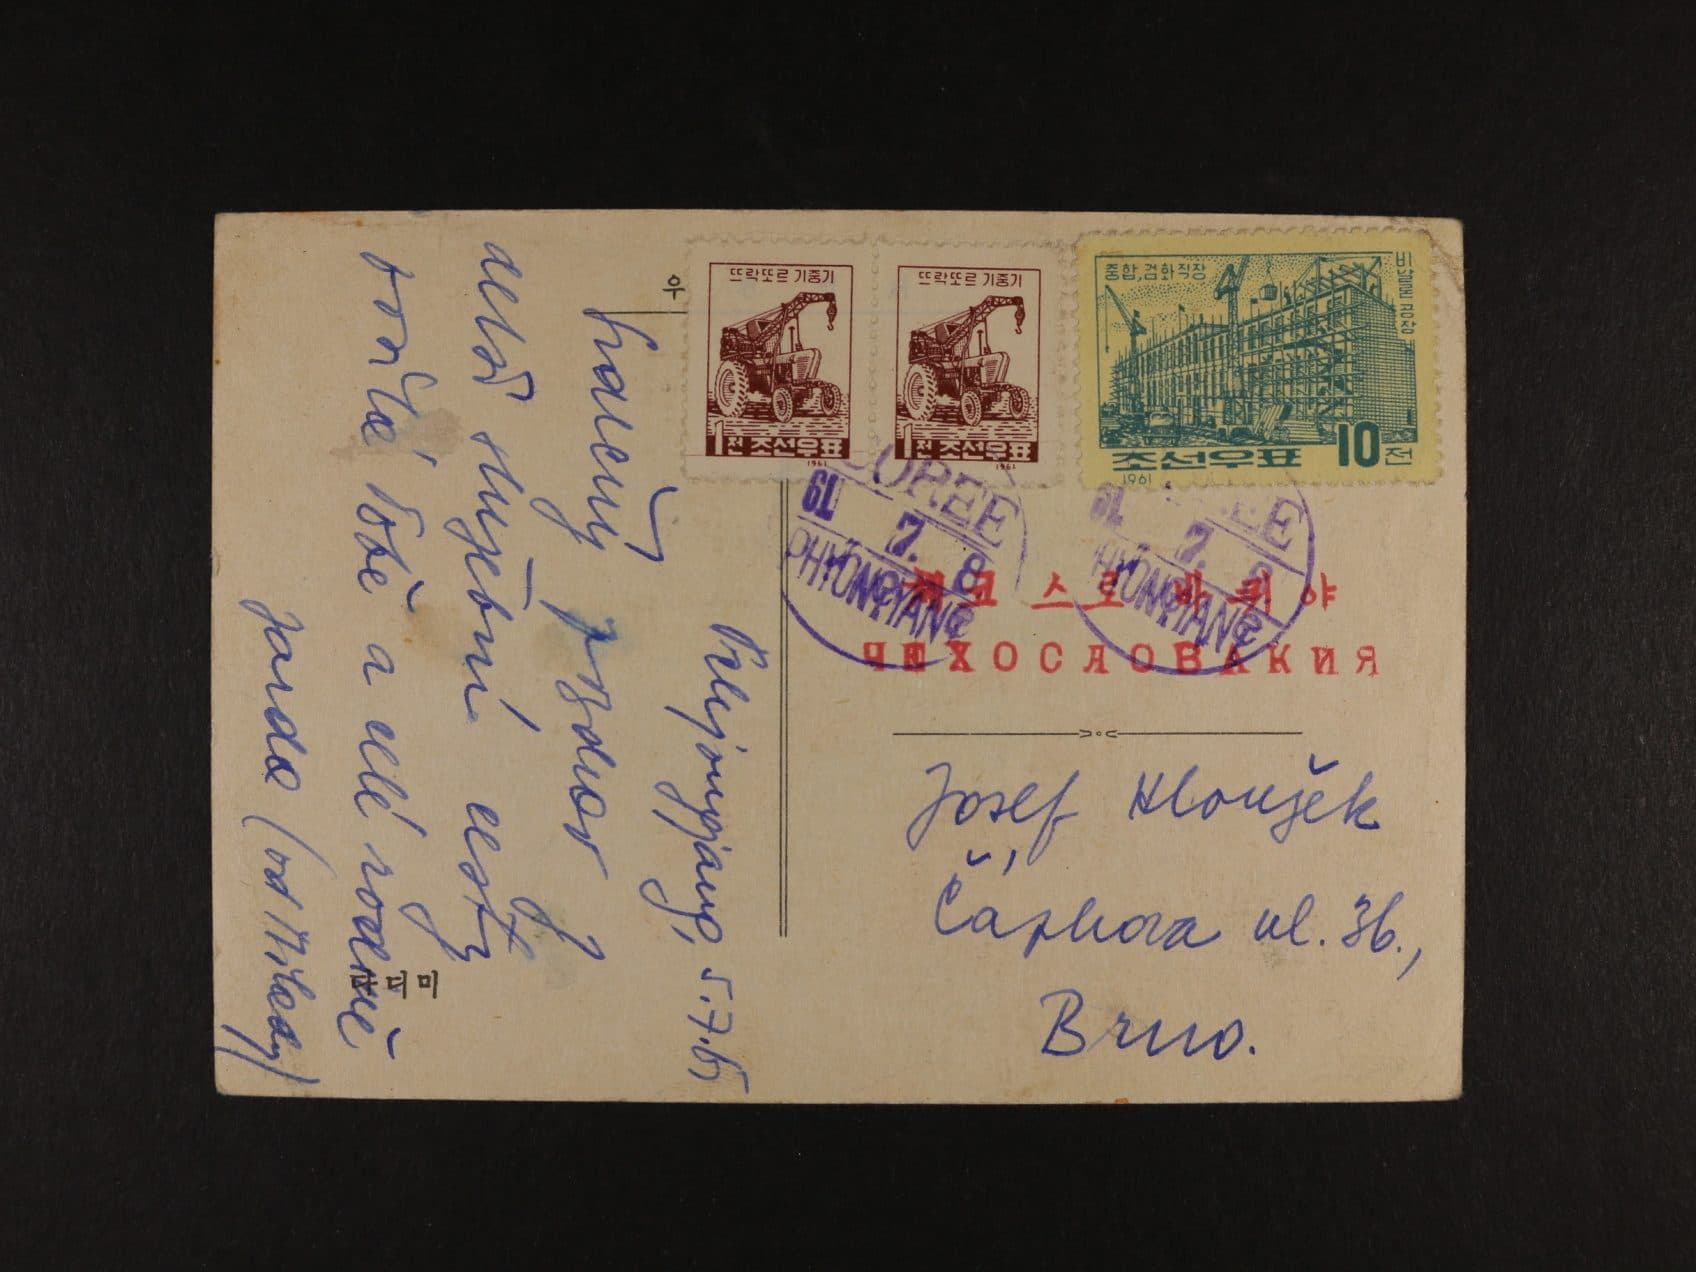 우
뜨락또르 기중기
1전 조선우표
1961
뜨락또르 기중기
1전 조선우표
1961
중합, 검화직장
비날론 공장
조선우표 10전
1961
COREE
61 7. 8
PHYONGYANG
61 7. 8
PHYONGYANG
체코스로바키야
ЧЕХОСЛОВАКИЯ
Josef Hloušek
Čápkova ul. 36.,
Brno.
5.7.61
Srdečný pozdrav z
delší služební cesty
Tobě a celé rodině
Jarda (od Milady)
디미